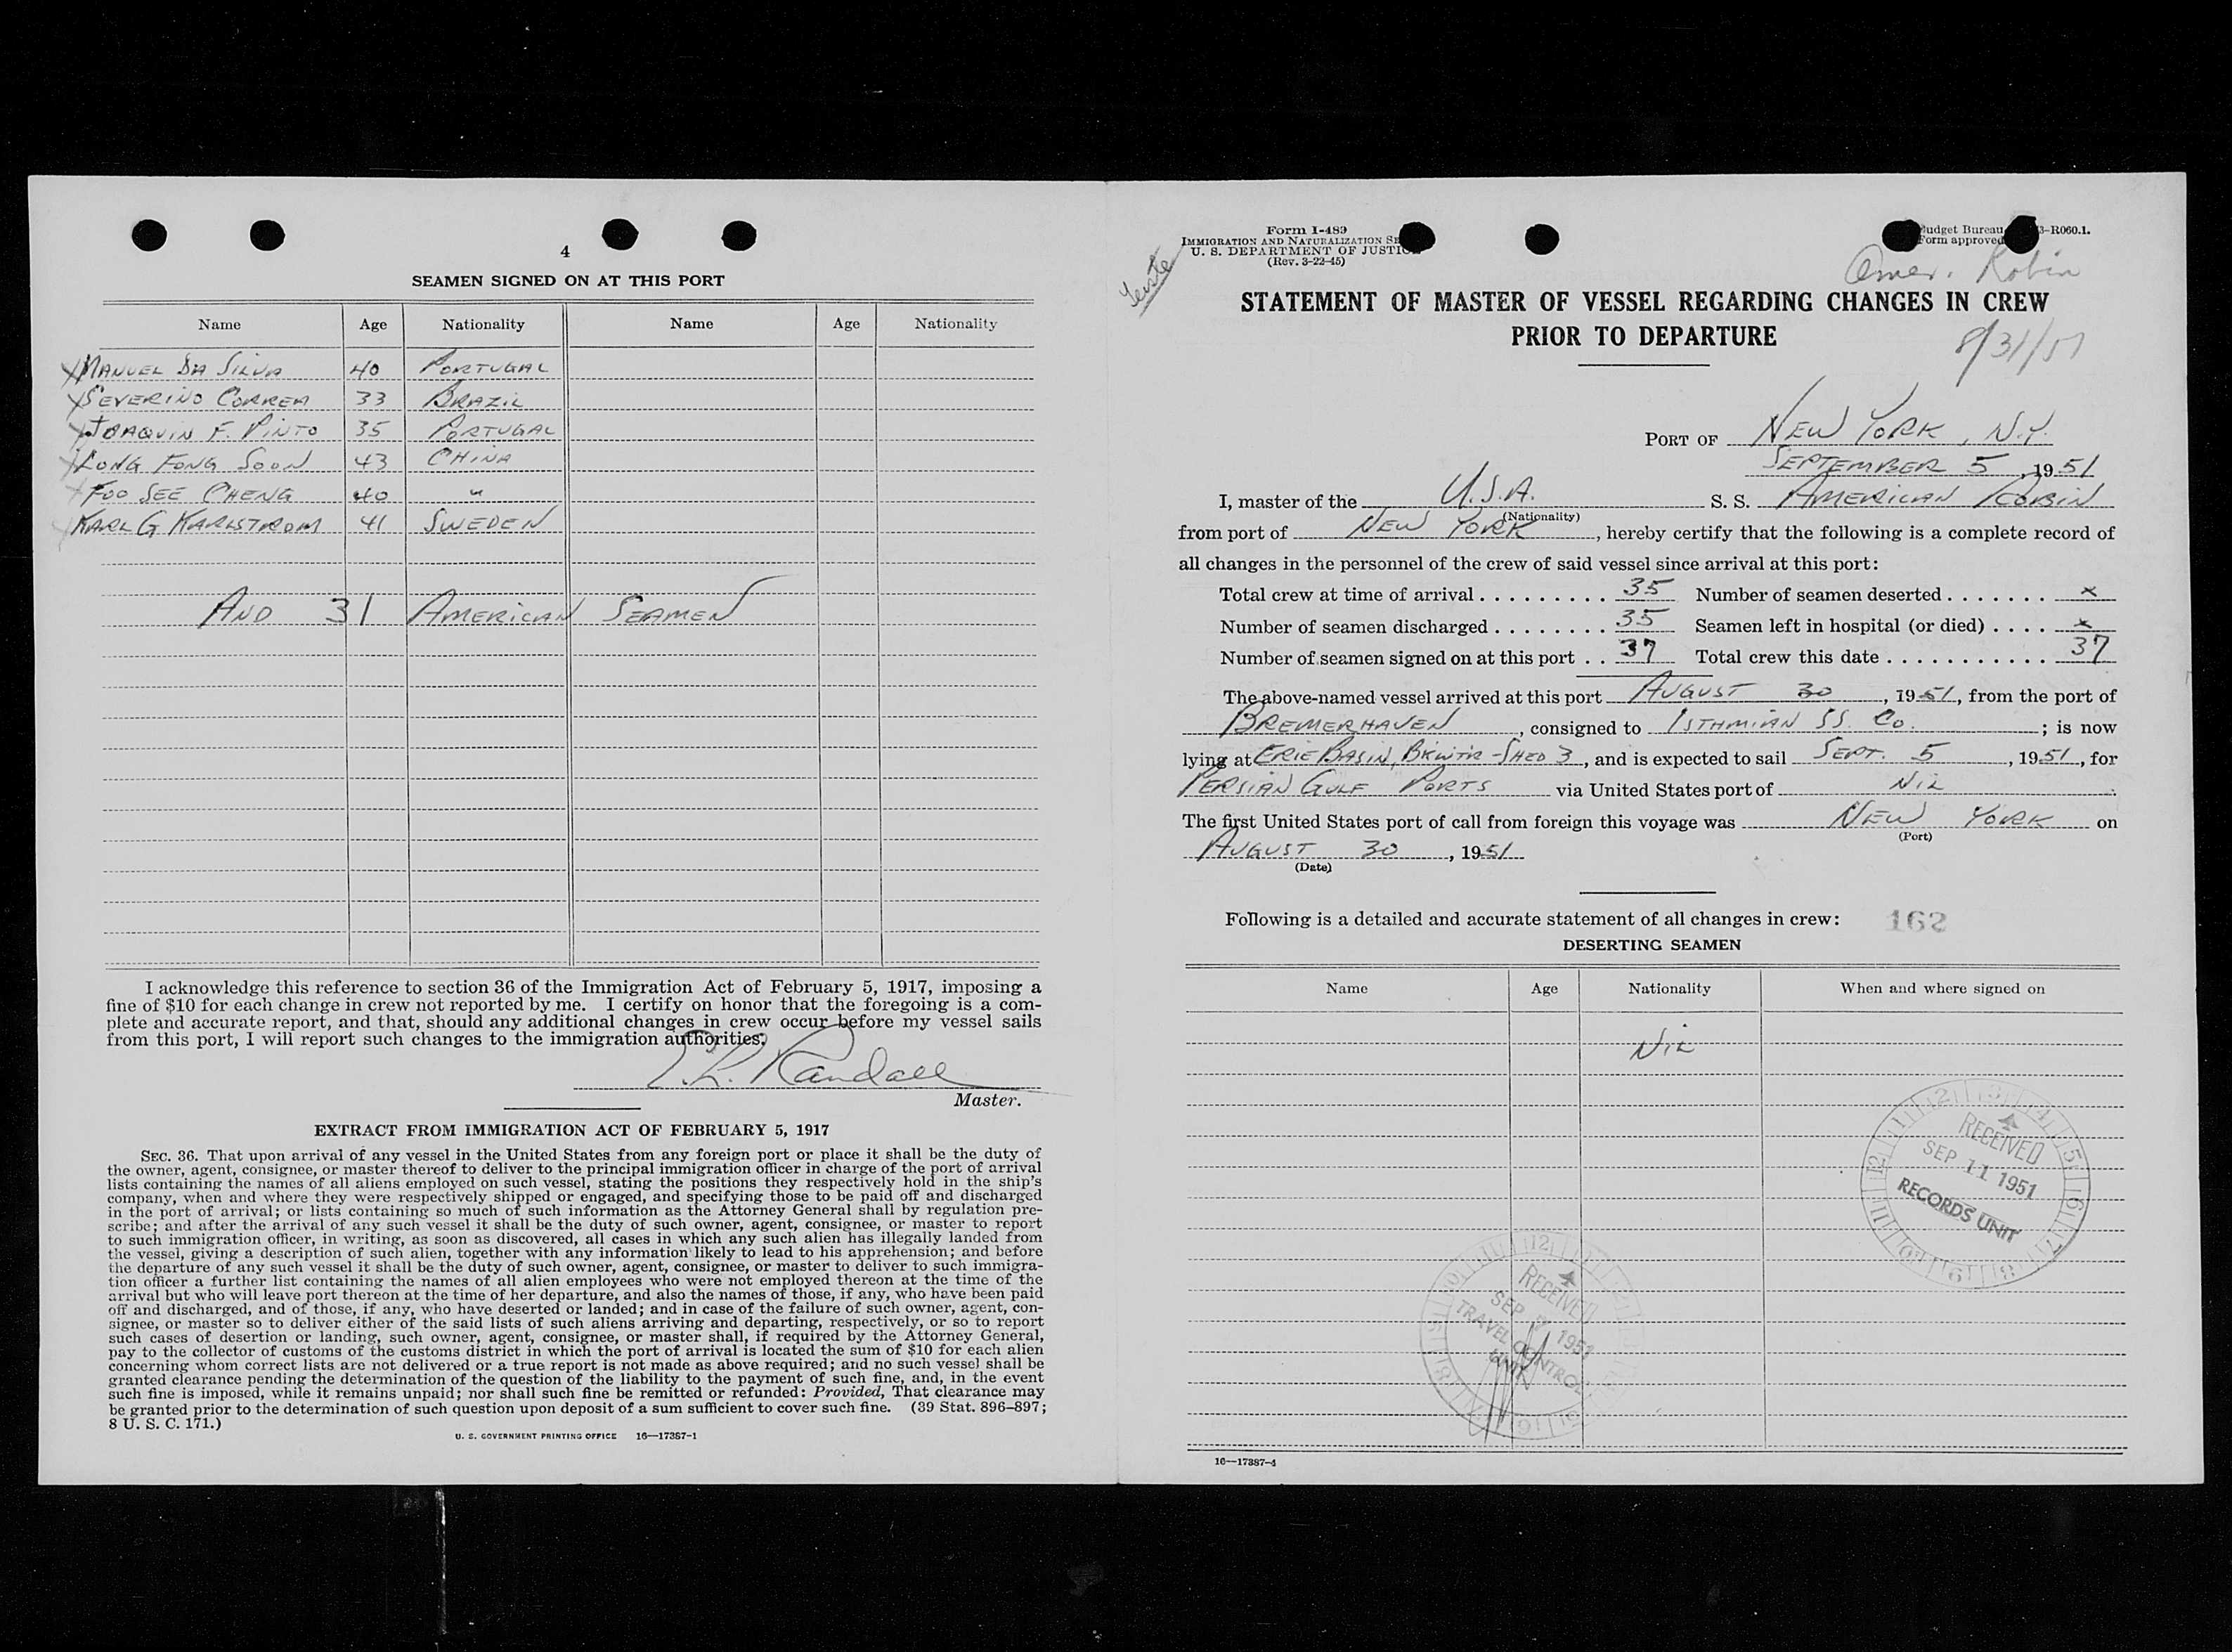 4
SEAMEN SIGNED ON AT THIS PORT
Name Age Nationality Name Age Nationality
MANUEL DA SILVA 40 PORTUGAL
SEVERINO CORREA 33 BRAZIL
JOAQUIN F. PINTO 35 PORTUGAL
LONG FONG SOON 43 CHINA
FOO SEE CHENG 40 "
KARL G KARLSTROM 41 SWEDEN
AND 31 AMERICAN SEAMEN
I acknowledge this reference to section 36 of the Immigration Act of February 5, 1917, imposing a
fine of $10 for each change in crew not reported by me. I certify on honor that the foregoing is a com-
plete and accurate report, and that, should any additional changes in crew occur before my vessel sails
from this port, I will report such changes to the immigration authorities.
Randall
Master.
EXTRACT FROM IMMIGRATION ACT OF FEBRUARY 5, 1917
SEC. 36. That upon arrival of any vessel in the United States from any foreign port or place it shall be the duty of
the owner, agent, consignee, or master thereof to deliver to the principal immigration officer in charge of the port of arrival
lists containing the names of all aliens employed on such vessel, stating the positions they respectively hold in the ship's
company, when and where they were respectively shipped or engaged, and specifying those to be paid off and discharged
in the port of arrival; or lists containing so much of such information as the Attorney General shall by regulation pre-
scribe; and after the arrival of any such vessel it shall be the duty of such owner, agent, consignee, or master to report
to such immigration officer, in writing, as soon as discovered, all cases in which any such alien has illegally landed from
the vessel, giving a description of such alien, together with any information likely to lead to his apprehension; and before
the departure of any such vessel it shall be the duty of such owner, agent, consignee, or master to deliver to such immigra-
tion officer a further list containing the names of all alien employees who were not employed thereon at the time of the
arrival but who will leave port thereon at the time of her departure, and also the names of those, if any, who have been paid
off and discharged, and of those, if any, who have deserted or landed; and in case of the failure of such owner, agent, con-
signee, or master so to deliver either of the said lists of such aliens arriving and departing, respectively, or so to report
such cases of desertion or landing, such owner, agent, consignee, or master shall, if required by the Attorney General,
pay to the collector of customs of the customs district in which the port of arrival is located the sum of $10 for each alien
concerning whom correct lists are not delivered or a true report is not made as above required; and no such vessel shall be
granted clearance pending the determination of the question of the liability to the payment of such fine, and, in the event
such fine is imposed, while it remains unpaid; nor shall such fine be remitted or refunded: Provided, That clearance may
be granted prior to the determination of such question upon deposit of a sum sufficient to cover such fine. (39 Stat. 896–897;
8 U. S. C. 171.)
U. S. GOVERNMENT PRINTING OFFICE 16—17387-1
Form I-489
IMMIGRATION AND NATURALIZATION SE
U. S. DEPARTMENT OF JUSTIC
(Rev. 3-22-45)
Budget Bureau 3-R060.1.
Form approved
Amer. Robin
STATEMENT OF MASTER OF VESSEL REGARDING CHANGES IN CREW
PRIOR TO DEPARTURE
8/31/51
PORT OF NEW YORK, N.Y.
SEPTEMBER 5, 1951
I, master of the U.S.A. S. S. AMERICAN ROBIN
(Nationality)
from port of NEW YORK, hereby certify that the following is a complete record of
all changes in the personnel of the crew of said vessel since arrival at this port:
Total crew at time of arrival . . . . . . . . . 35 Number of seamen deserted . . . . . . . x
Number of seamen discharged . . . . . . . . 35 Seamen left in hospital (or died) . . . . x
Number of seamen signed on at this port . . 37 Total crew this date . . . . . . . . . . . . 37
The above-named vessel arrived at this port AUGUST 30, 1951, from the port of
BREMERHAVEN, consigned to ISTHMIAN SS. Co.; is now
lying at ERIE BASIN, BKWTR-SHED 3, and is expected to sail SEPT. 5, 1951, for
PERSIAN GULF PORTS via United States port of NIL
The first United States port of call from foreign this voyage was NEW YORK on
(Port)
AUGUST 30, 1951
(Date)
Following is a detailed and accurate statement of all changes in crew: 162
DESERTING SEAMEN
Name Age Nationality When and where signed on
NIL
RECEIVED
SEP 11 1951
RECORDS UNIT
RECEIVED
SEP 1951
TRAVEL CONTROL
UNIT
16—17387-4